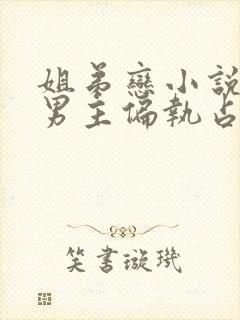 姐弟戀小說
男主偏執占
笑書璇璣